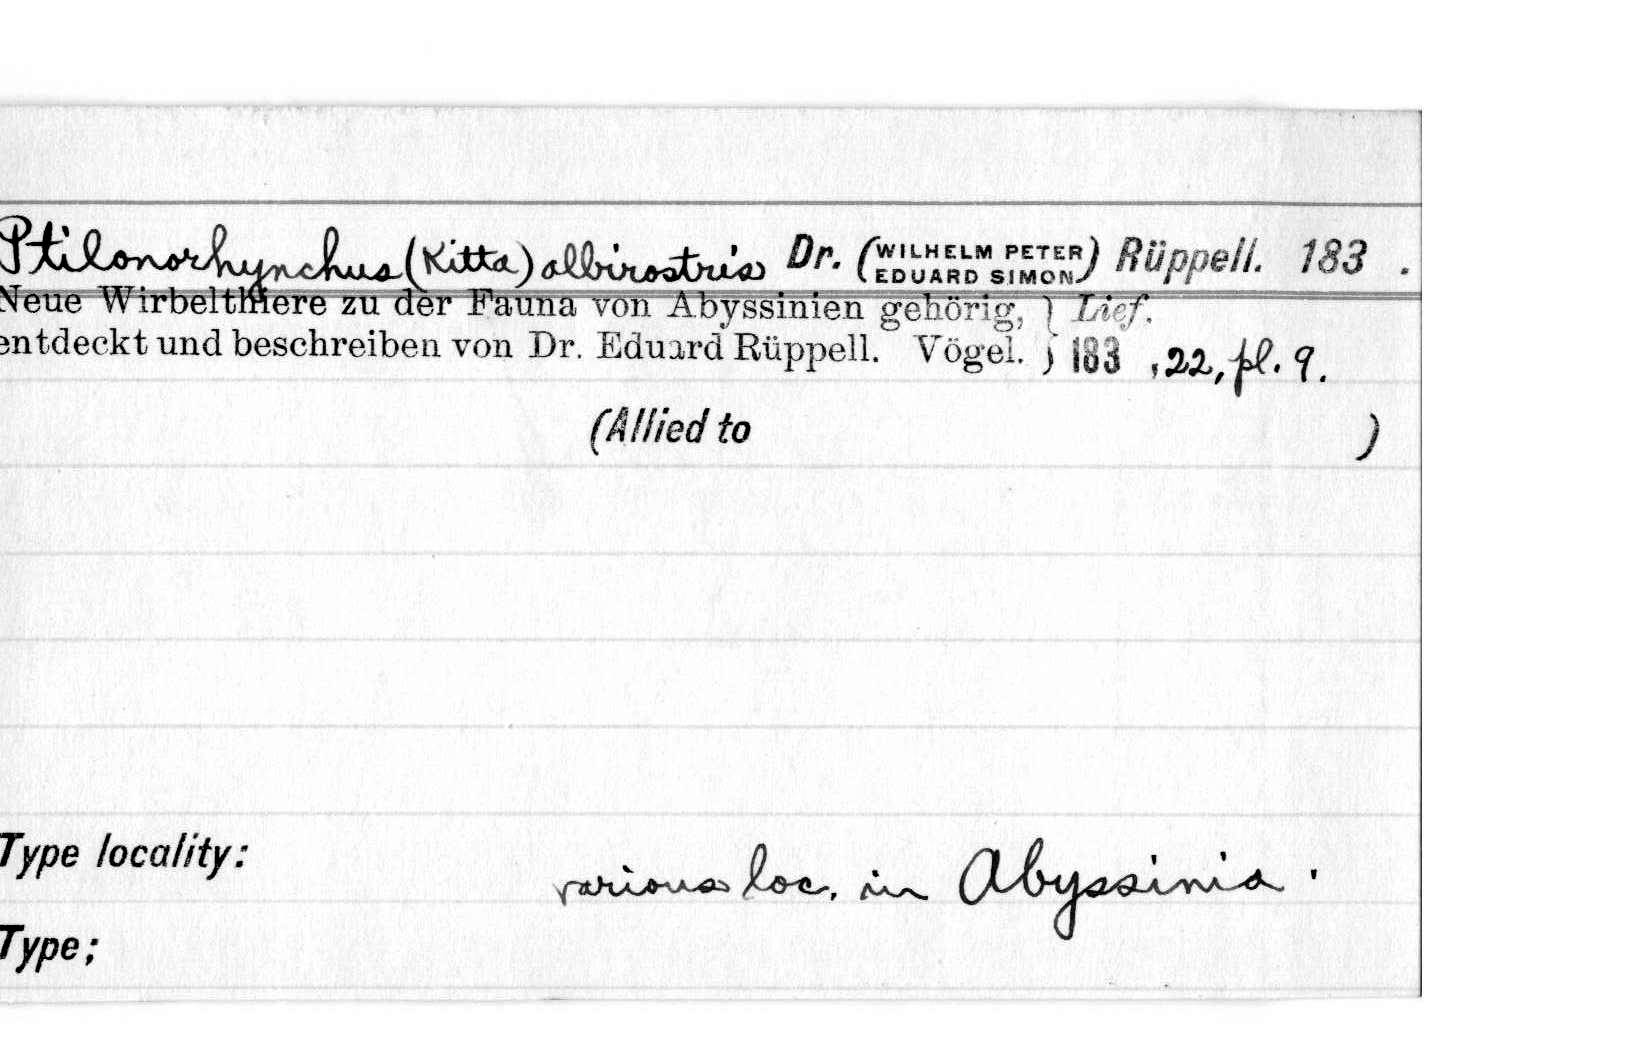 Ptilonorhynchus (Kitta) albirostris Dr. (WILHELM PETER EDUARD SIMON) Rüppell. 183 .
Neue Wirbelthiere zu der Fauna von Abyssinien gehörig, } Lief.
entdeckt und beschreiben von Dr. Eduard Rüppell. Vögel. } 183 , 22, pl. 9.
(Allied to )
Type locality: various loc. in Abyssinia .
Type;